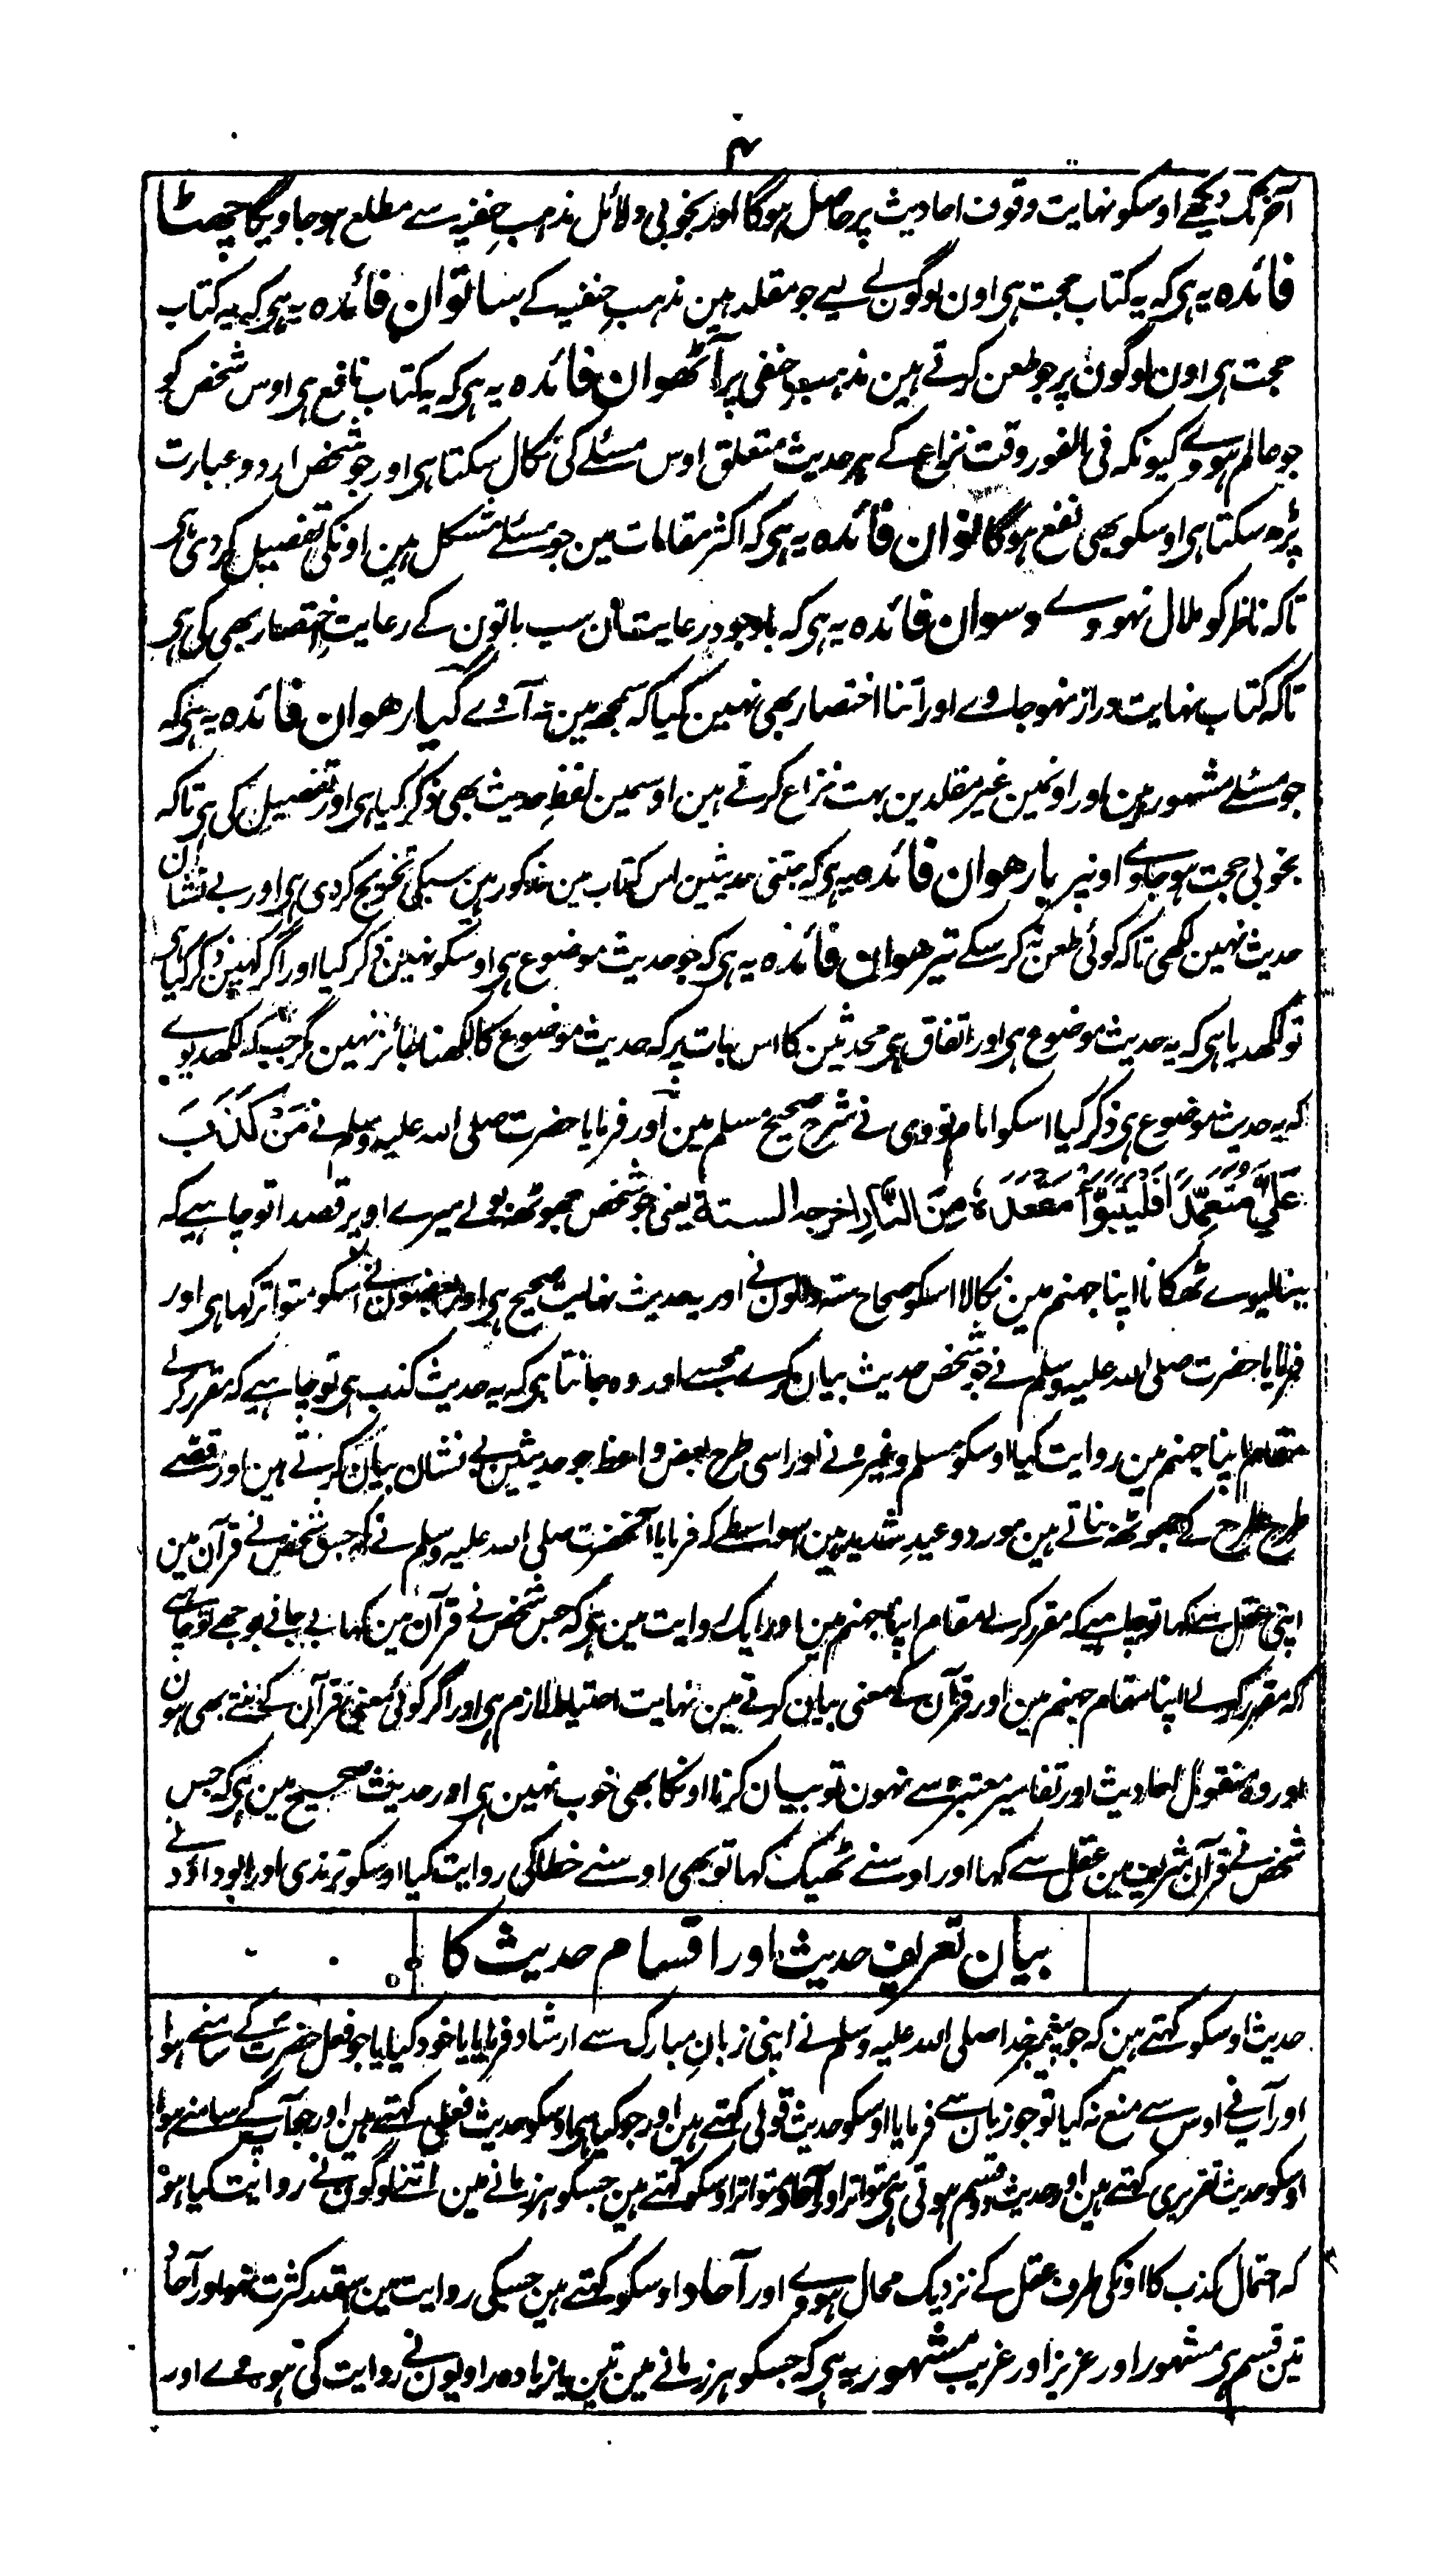 ۴
آخر تک دیکھے اوسکو نہایت وقوف احادیث پر حاصل ہوگا اور بخوبی دلائل مذہبِ حنفیہ سے مطلع ہو جاویگا چھٹا
فائدہ یہ ہی کہ یہ کتاب حجت ہی اون لوگونکے لیے جو مقلد ہین مذہبِ حنفیہ کے ساتوان فائدہ یہ ہی کہ یہ کتاب
حجت ہی اون لوگون پر جو طعن کرتے ہین مذہبِ حنفی پر آٹھوان فائدہ یہ ہی کہ یہ کتاب نافع ہی اوس شخص کو
جو عالم ہووے کیونکہ فی الفور وقت نزاع کے ہر حدیث متعلق اوس مسئلے کی نکال سکتا ہی اور جو شخص اردو عبارت
پڑہ سکتا ہی اوسکو بھی نفع ہوگا نوان فائدہ یہ ہی کہ اکثر مقامات مین جو مسئلے مشکل ہین اونکی تفصیل کر دی ہی
تاکہ ناظر کو ملال نہووے دسوان فائدہ یہ ہی کہ باوجود رعایت ان سب باتون کے رعایتِ اختصار بھی کی ہی
تاکہ کتاب نہایت دراز نہو جاوے اور اتنا اختصار بھی نہین کیا کہ سمجھ مین نہ آوے گیارھوان فائدہ یہ ہی کہ
جو مسئلے مشہور ہین اور اونمین غیر مقلدین بہت نزاع کرتے ہین اوسمین لفظِ حدیث بھی ذکر کیا ہی اور تفصیل کی ہی تاکہ
بخوبی حجت ہو جاوے اونپر بارھوان فائدہ یہ ہی کہ جتنی حدیثین اس کتاب مین مذکور ہین سبکی تخریج کر دی ہی اور بے نشان
حدیث نہین لکھی تاکہ کوئی طعن نہ کر سکے تیرھوان فائدہ یہ ہی کہ جو حدیث موضوع ہی اوسکو نہین ذکر کیا اور اگر کہین ذکر کیا ہی
تو لکھدیا ہی کہ یہ حدیث موضوع ہی اور اتفاق ہی محدثین کا اس بات پر کہ حدیث موضوع کا لکھنا جائز نہین مگر جبکہ لکھدیوے
کہ یہ حدیث موضوع ہی ذکر کیا اسکو امام نووی نے شرح صحیح مسلم مین اور فرمایا حضرت صلی اللہ علیہ وسلم نے مَنْ كَذَبَ
عَلَيَّ مُتَعَمِّدًا فَلْيَتَبَوَّأْ مَقْعَدَهٗ مِنَ النَّارِ اخرجہ الستة یعنی جو شخص جھوٹھ بولے میرے اوپر قصدا تو چاہیے کہ
بنا لیوے ٹھکانا اپنا جہنم مین نکالا اسکو صحاح ستہ والون نے اور یہ حدیث نہایت صحیح ہی اور بعضون نے اسکو متواتر کہا ہی اور
فرمایا حضرت صلی اللہ علیہ وسلم نے جو شخص حدیث بیان کرے مجھسے اور وہ جانتا ہی کہ یہ حدیث کذب ہی تو چاہیے کہ مقرر کرلے
مقام اپنا جہنم مین روایت کیا اوسکو مسلم وغیرہ نے اور اسی طرح بعض واعظ جو حدیثین بے نشان بیان کرتے ہین اور قصے
طرح طرح کے جھوٹھ بناتے ہین مورد وعیدِ شدید ہین اسواسطے کہ فرمایا آنحضرت صلی اللہ علیہ وسلم نے کہ جس شخص نے قرآن مین
اپنی عقل سے کہا تو چاہیے کہ مقرر کرلے مقام اپنا جہنم مین اور ایک روایت مین ہی کہ جس شخص نے قرآن مین کہا بے جانے بوجھے تو چاہیے
کہ مقرر کرلے اپنا مقام جہنم مین اور قرآن کے معنی بیان کرتے مین نہایت احتیاط لازم ہی اور اگر کوئی معنی قرآن کے بنتے بھی ہون
اور وہ منقول احادیث اور تفاسیر معتبرہ سے نہون تو بیان کرنا اونکا بھی خوب نہین ہی اور حدیث صحیح مین ہی کہ جس
شخص نے قرآن شریف مین عقل سے کہا اور اوسنے ٹھیک کہا تو بھی اوسنے خطا کی روایت کیا اوسکو ترمذی اور ابو داؤد نے
بیان تعریف حدیث اور اقسام حدیث کا
حدیث اوسکو کہتے ہین کہ جو پیغمبر خدا صلی اللہ علیہ وسلم نے اپنی زبانِ مبارک سے ارشاد فرمایا یا خود کیا یا جو فعل حضرت کے سامنے ہوا
اور آپ نے اوس سے منع نہ کیا تو جو زبان سے فرمایا اوسکو حدیث قولی کہتے ہین اور جو کیا ہی اوسکو حدیث فعلی کہتے ہین اور جو آپ کے سامنے ہوا
اوسکو حدیث تقریری کہتے ہین اور حدیث دو قسم ہوتی ہی متواتر اور آحاد متواتر اوسکو کہتے ہین جسکو ہر زمانے مین اتنے لوگون نے روایت کیا ہو
کہ احتمال کذب کا اونکی طرف عقل کے نزدیک محال ہووے اور آحاد اوسکو کہتے ہین جسکی روایت مین اسقدر کثرت نہو اور آحاد
تین قسم ہی مشہور اور عزیز اور غریب مشہور یہ ہی کہ جسکو ہر زمانے مین تین یا زیادہ راویون نے روایت کی ہووے اور